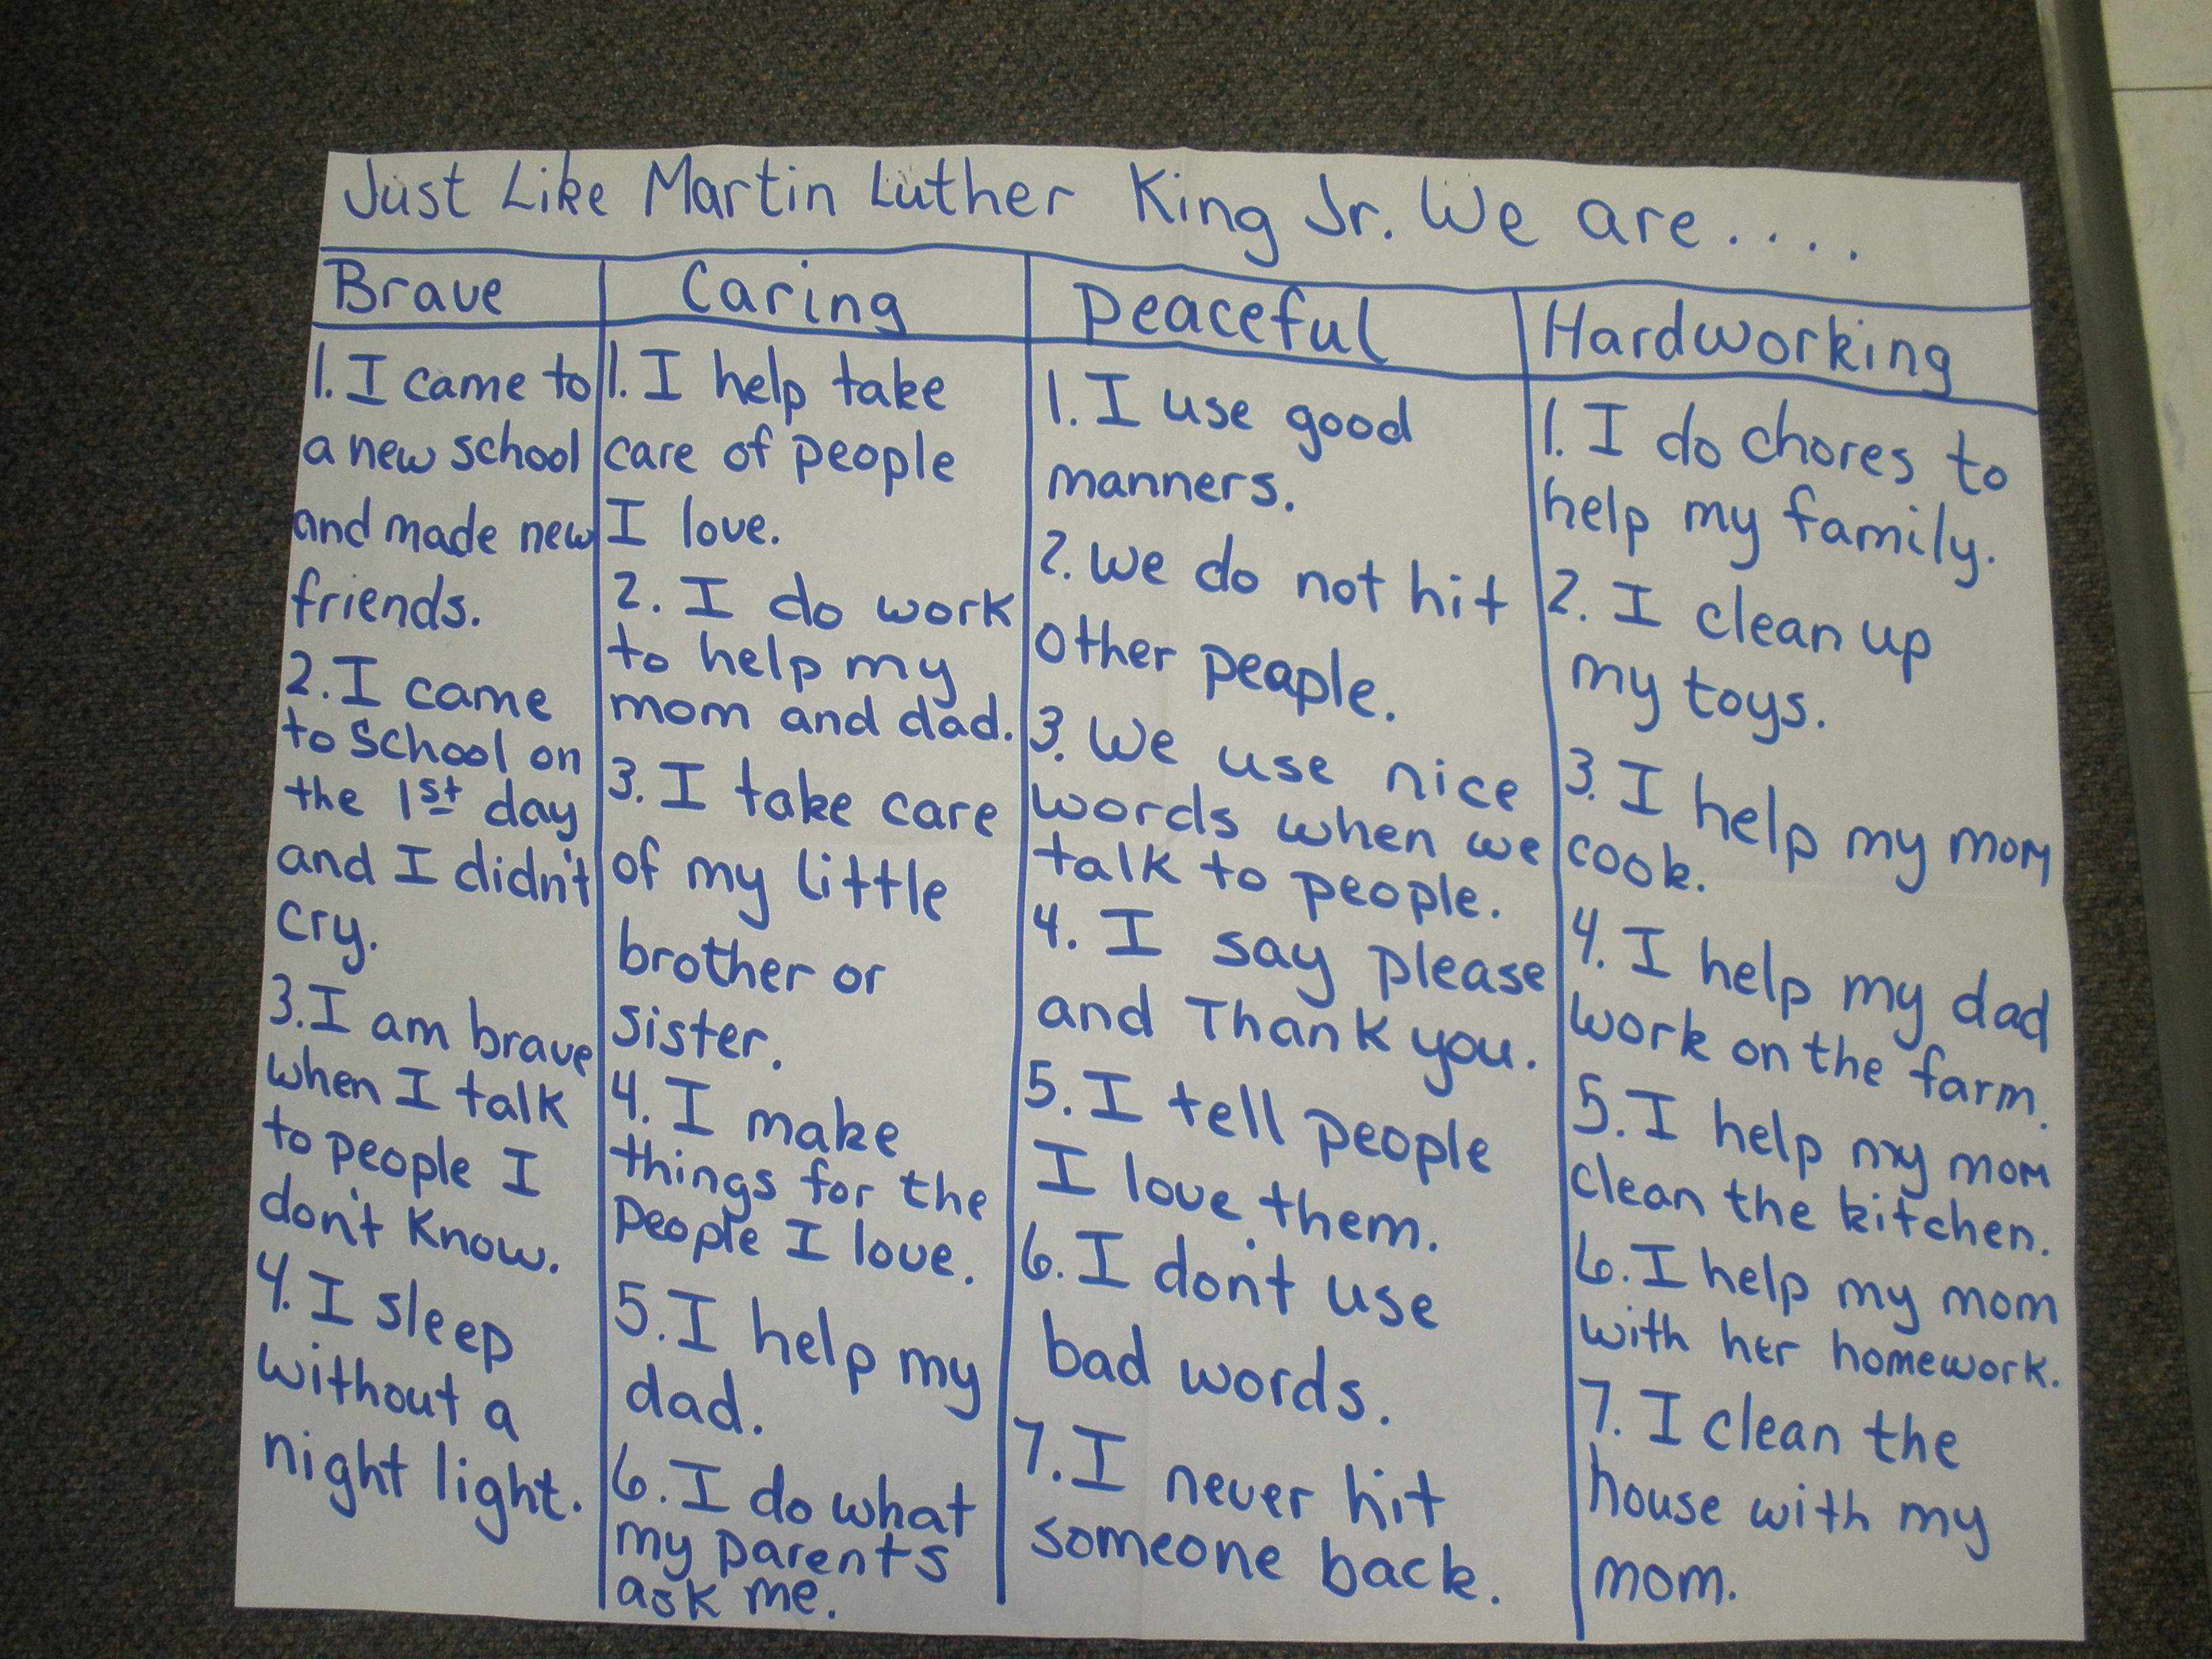 Just Like Martin Luther King Jr. We are....
Brave
1. I came to
a new school
and made new
friends.
2. I came
to School on
the 1st day
and I didn't
cry.
3. I am brave
when I talk
to people I
don't know.
4. I sleep
without a
night light.
Caring
1. I help take
care of people
I love.
2. I do work
to help my
mom and dad.
3. I take care
of my little
brother or
sister.
4. I make
things for the
People I love.
5. I help my
dad.
6. I do what
my parents
ask me.
Peaceful
1. I use good
manners.
2. We do not hit
other people.
3. We use nice
words when we
talk to people.
4. I say please
and Thank you.
5. I tell people
I love them.
6. I don't use
bad words.
7. I never hit
someone back.
Hardworking
1. I do chores to
help my family.
2. I clean up
my toys.
3. I help my mom
cook.
4. I help my dad
work on the farm.
5. I help my mom
clean the kitchen.
6. I help my mom
with her homework.
7. I clean the
house with my
mom.